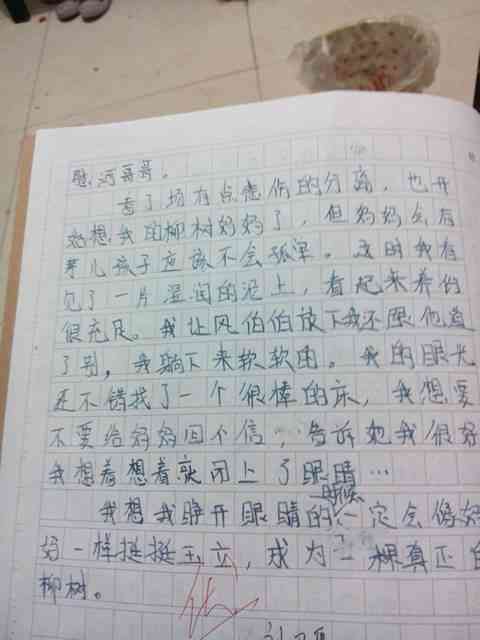 愁河哥哥。
看了场有点悲伤的分离,也开
始想我的柳树妈妈了,但妈妈会有
等儿孩子应该不会孤单。这时我看
见了一片湿润的泥土,看起来养份
很充足。我让风伯伯放下我还跟他道
了别,我躺下来软软的。我的眼光
还不错找了一个很棒的床,我想要
不要给妈妈回个信,告诉她我很好
我想着想着就闭上了眼睛…
我想我睁开眼睛的时候一定会像妈
好一样挺挺玉立,成为一棵真正的
柳树。